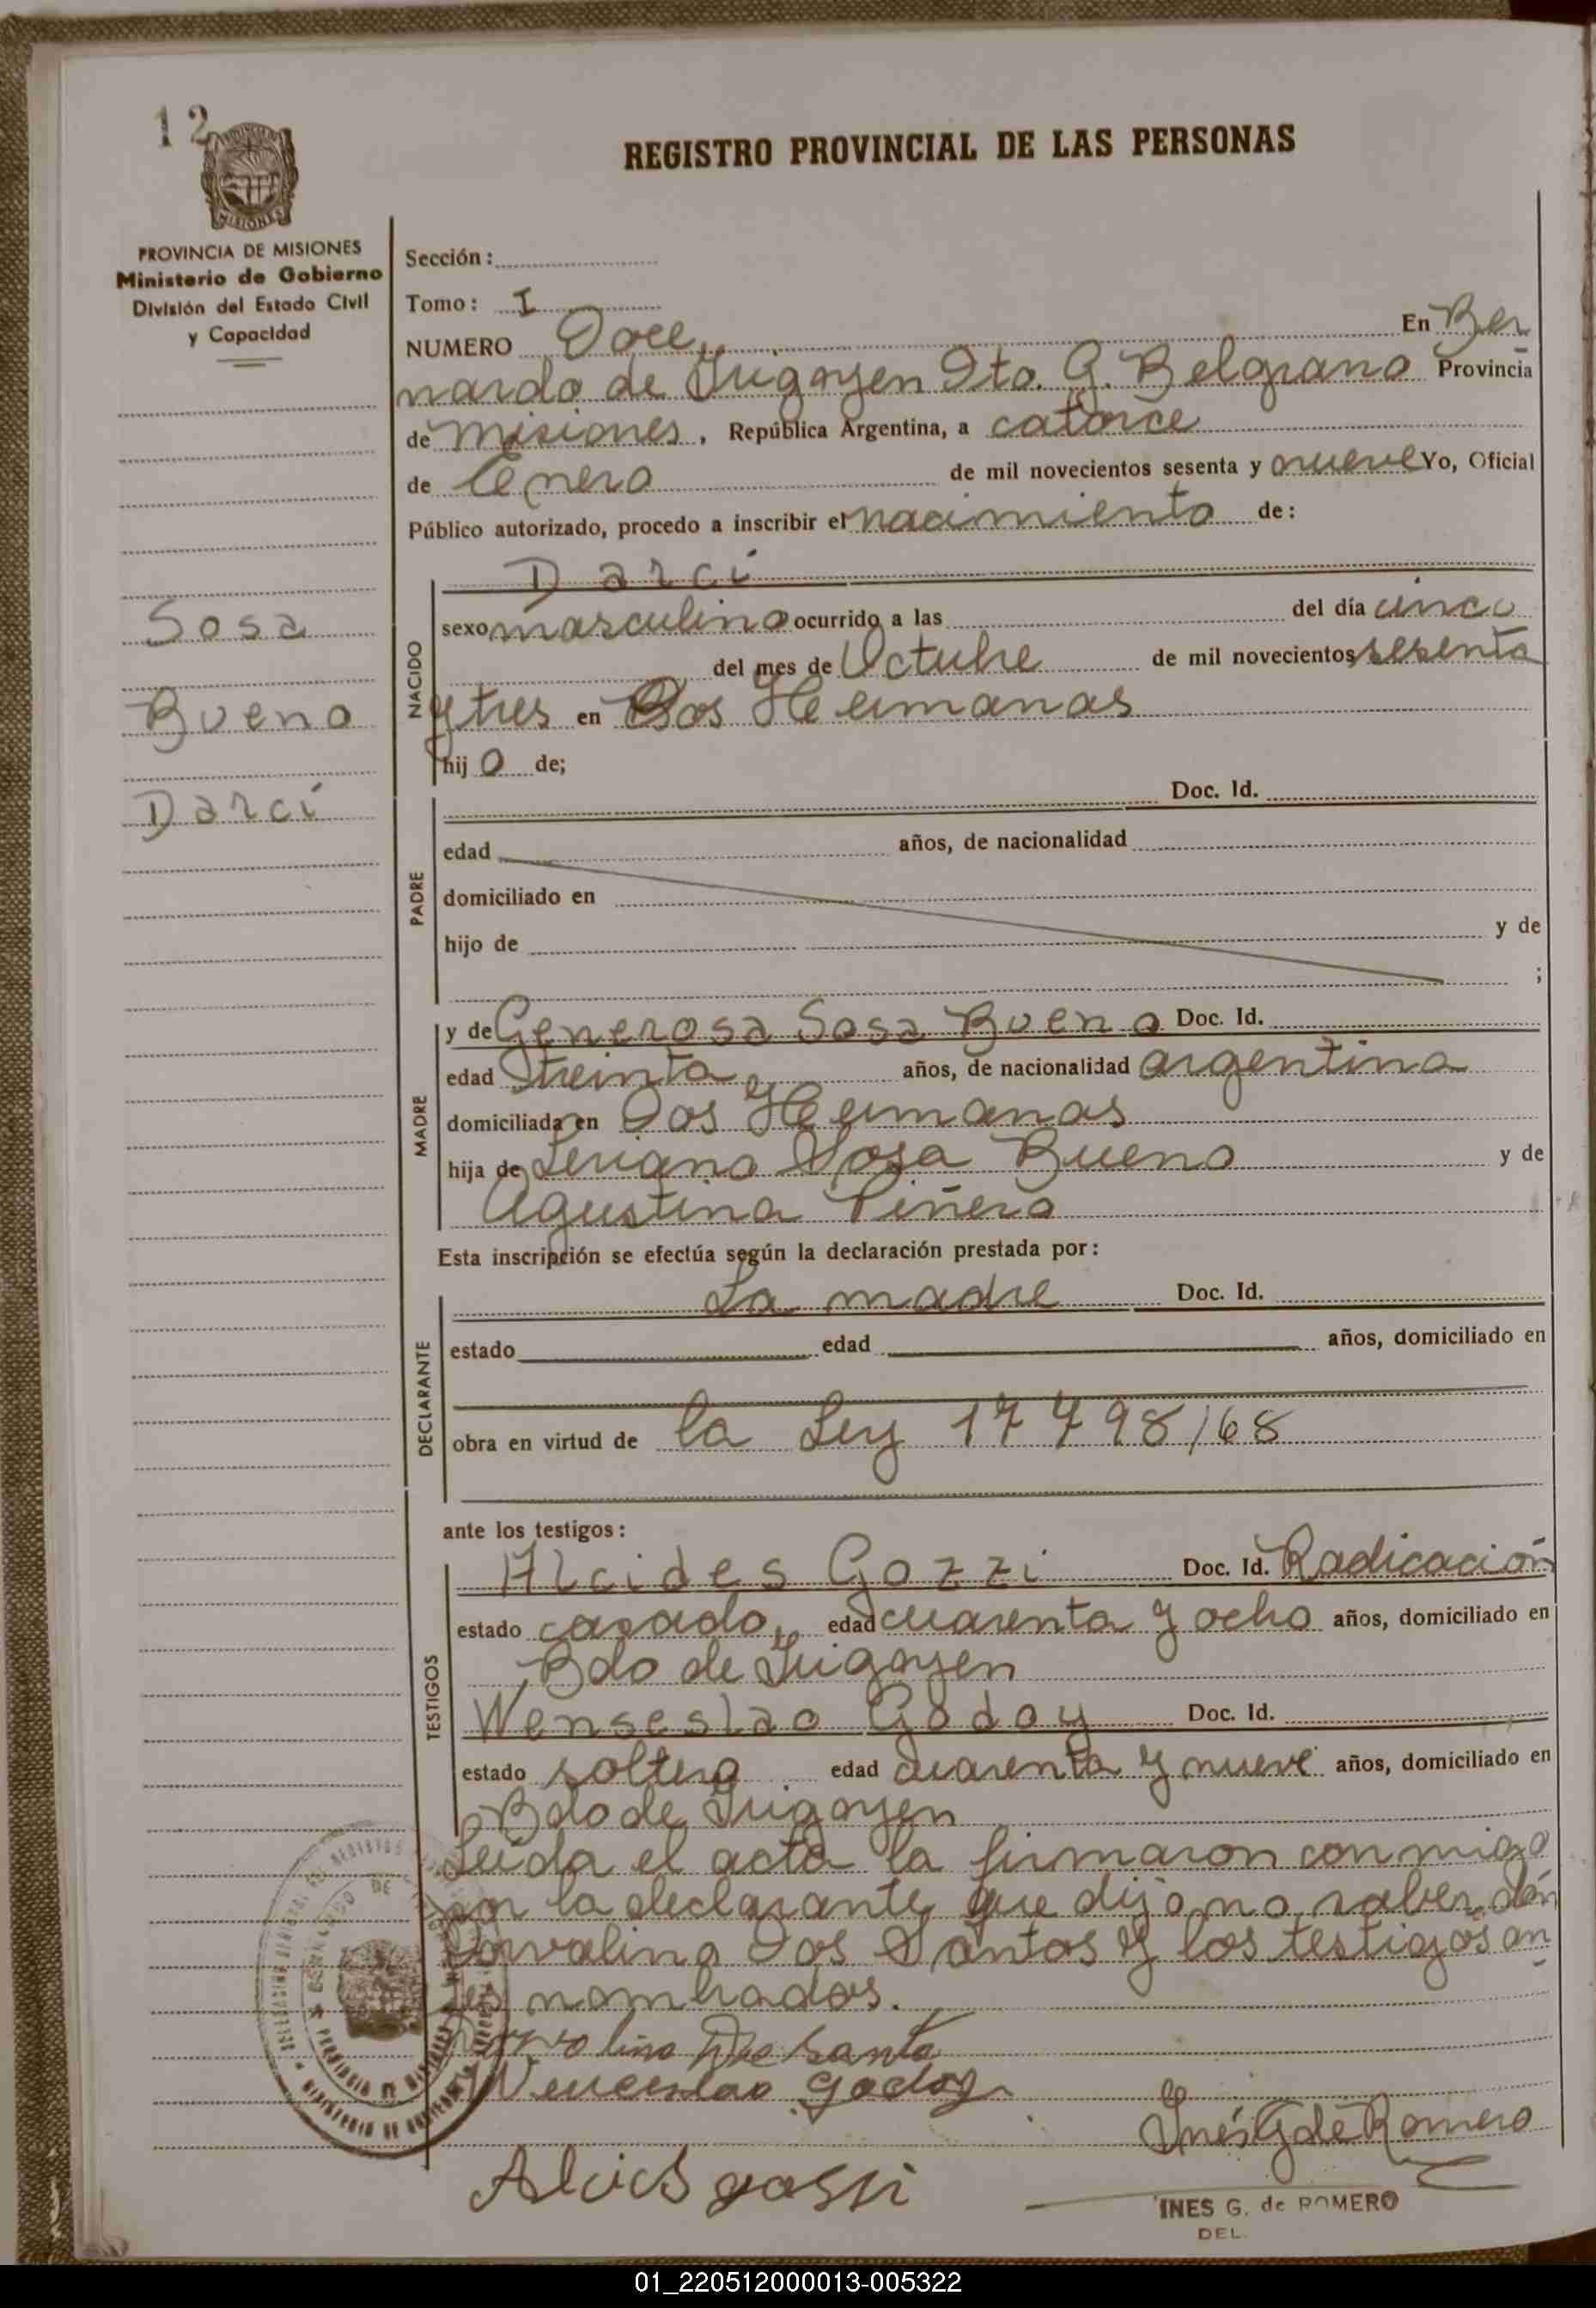 12
REGISTRO PROVINCIAL DE LAS PERSONAS
MISIONES
PROVINCIA DE MISIONES
Ministerio de Gobierno
División del Estado Civil
y Capacidad
Sosa
Bueno
Darci
Sección:
Tomo: I
NUMERO Doce, En Ber
nardo de Irigoyen Dto. G. Belgrano Provincia
de Misiones, República Argentina, a catorce
de Enero de mil novecientos sesenta y nueve Yo, Oficial
Público autorizado, procedo a inscribir el nacimiento de:
NACIDO
Darci
sexo masculino ocurrido a las del día cinco
del mes de Octubre de mil novecientos sesenta
y tres en Dos Hermanas
hijo de;
PADRE
Doc. Id.
edad años, de nacionalidad
domiciliado en
hijo de y de
;
MADRE
y de Generosa Sosa Bueno Doc. Id.
edad treinta, años, de nacionalidad argentina
domiciliada en Dos Hermanas
hija de Sosa Bueno y de
Agustina Piñero
Esta inscripción se efectúa según la declaración prestada por:
DECLARANTE
La madre Doc. Id.
estado edad años, domiciliado en
obra en virtud de la Ley 17798/68
ante los testigos:
TESTIGOS
Alcides Gozzi Doc. Id. Radicación
estado casado, edad cuarenta y ocho años, domiciliado en
Bdo de Irigoyen
Wenseslao Godoy Doc. Id.
estado soltero edad cuarenta y nueve años, domiciliado en
Bdo de Irigoyen
Leída el acta la firmaron conmigo
por la declarante que dijo no saber, don
Dorvalino Dos Santos y los testigos an
tes nombrados.
Wenceslao Godoy
Inés G de Romero
INES G. de ROMERO
DEL.
01_220512000013-005322